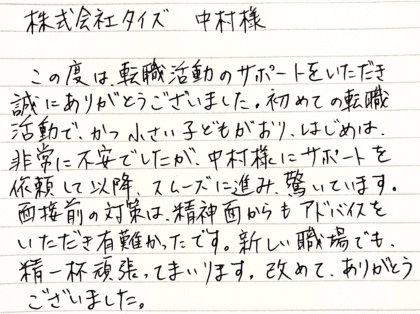 株式会社タイズ 中村様
この度は、転職活動のサポートをいただき
誠にありがとうございました。初めての転職
活動で、かつ小さい子どもがおり、はじめは、
非常に不安でしたが、中村様にサポートを
依頼して以降、スムーズに進み、驚いています。
面接前の対策は、精神面からもアドバイスを
いただき有難かったです。新しい職場でも、
精一杯頑張ってまいります。改めて、ありがとう
ございました。